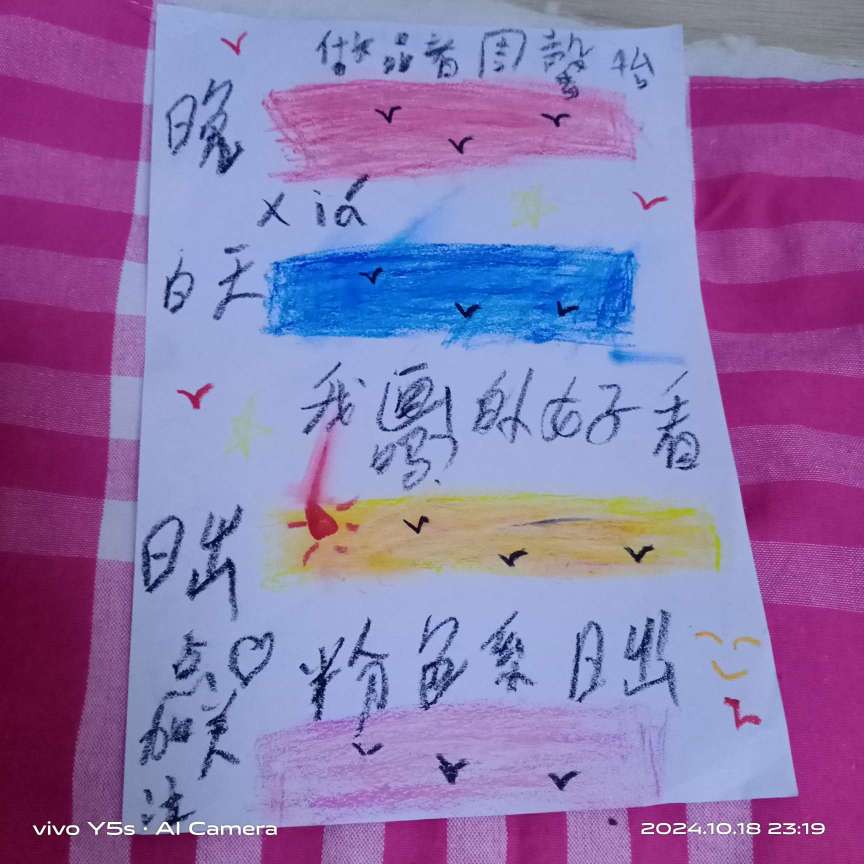 品者周馨
晚
xiá
白天
我画的好看
吗?
日出
点♡ 粉色系日出
加关
注
vivo Y5s · AI Camera 2024.10.18 23:19